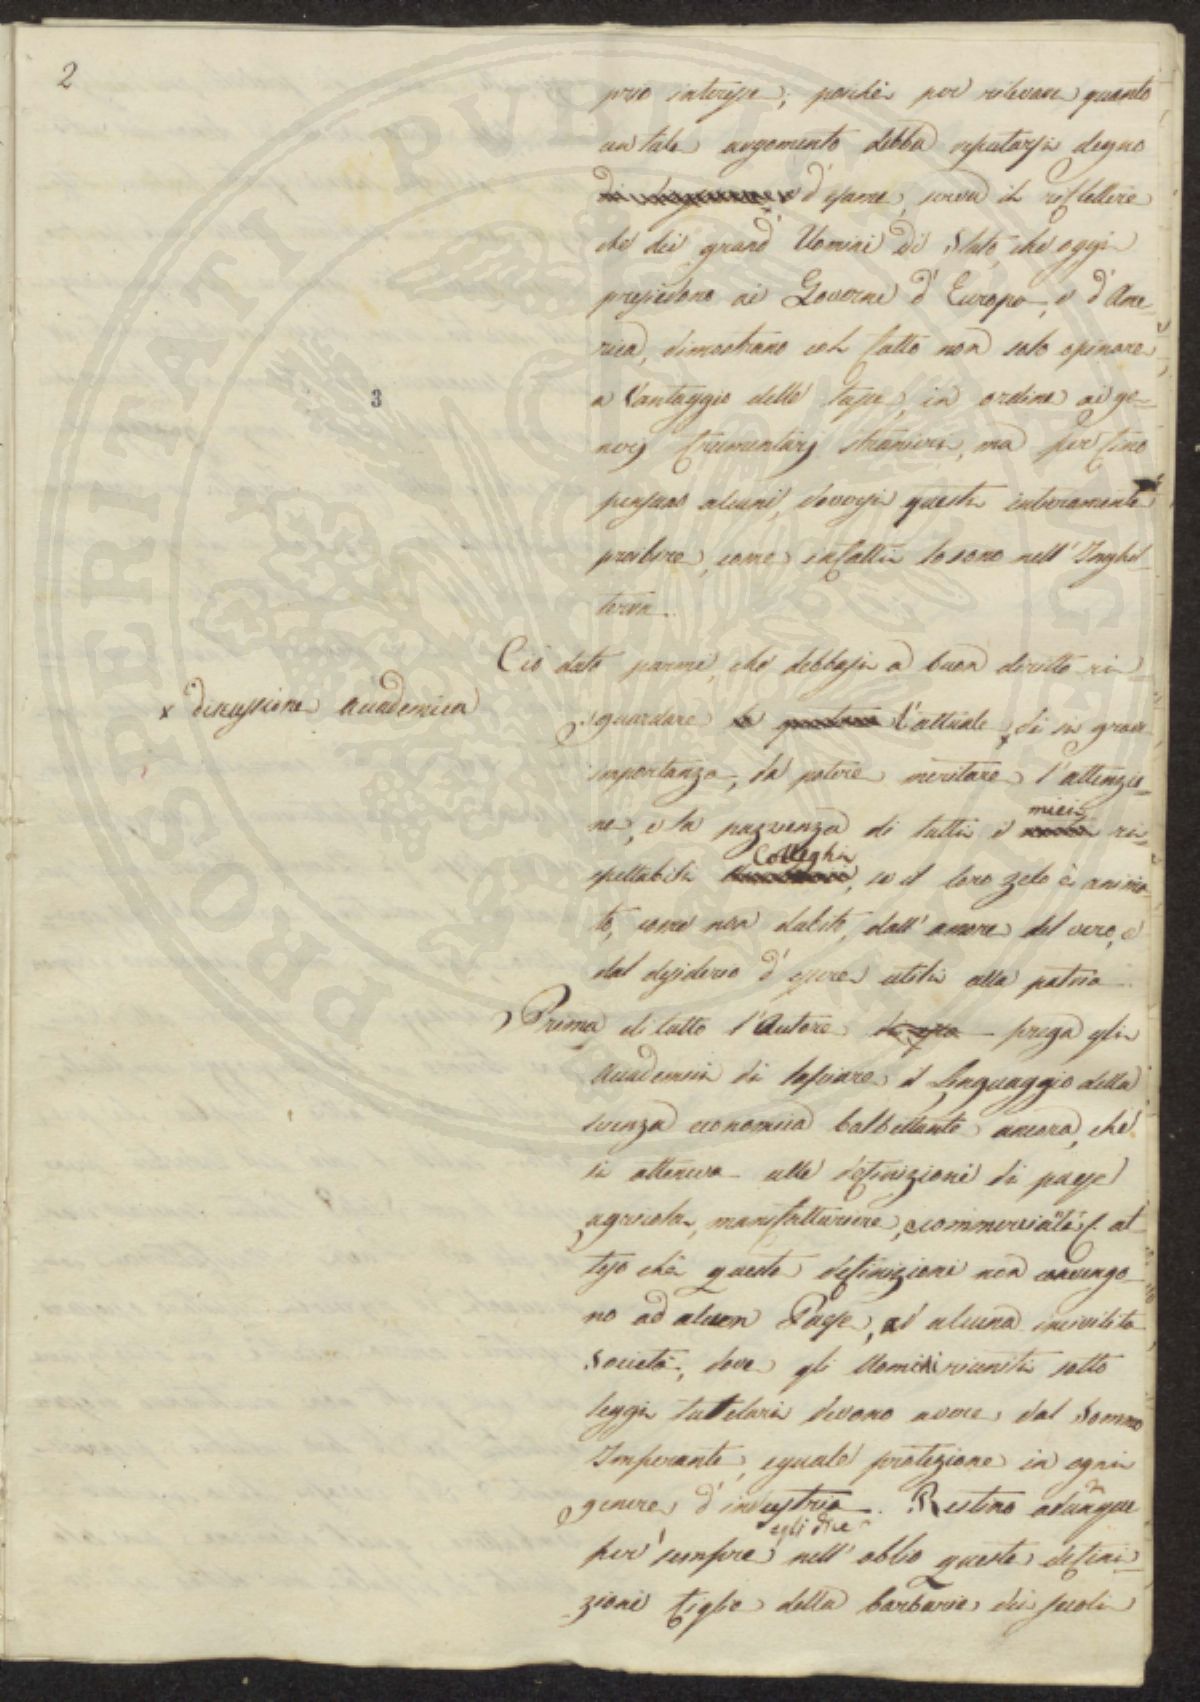 2
prio interesse; poichè per rilevare quanto
un tale argomento debba reputarsi degno
d'esame, serva il riflettere
che dei grand' Uomini di Stato, che oggi
presiedono ai Governi d'Europa, e d'Ame-
rica, dimostrano col fatto non solo opinare
a vantaggio delle tasse, in ordine ai ge-
neri frumentarj stranieri, ma perfino
pensano alcuni, doversi questi interamente
proibire, come infatti lo sono nell'Inghil-
terra.
3
Ciò dato parmi, che debbasi a buon diritto ri-
x discussione accademica
guardare la l'attuale x di sì grave
importanza, da potere meritare l'attenzio-
ne, e la pazienza di tutti i miei ri-
spettabili Colleghi, se il loro zelo è anima-
to, come non dubito, dall'amore del vero, e
dal desiderio d'essere utili alla patria.
Prima di tutto l'Autore prega gli
Accademici di lasciare il linguaggio della
scienza economica balbettante ancora, che
si atteneva alle definizioni di paese
agricola, manifatturiere, e commerciale, at-
teso che queste definizioni non convengo-
no ad alcun Paese, ad alcuna incivilita
Società, dove gli Uomini riuniti sotto
leggi tutelari devono avere dal Sommo
Imperante, eguale protezione in ogni
genere d'industria. Restino adunque
per sempre egli dice nell'oblio queste defini-
zioni figlie della barbarie dei secoli